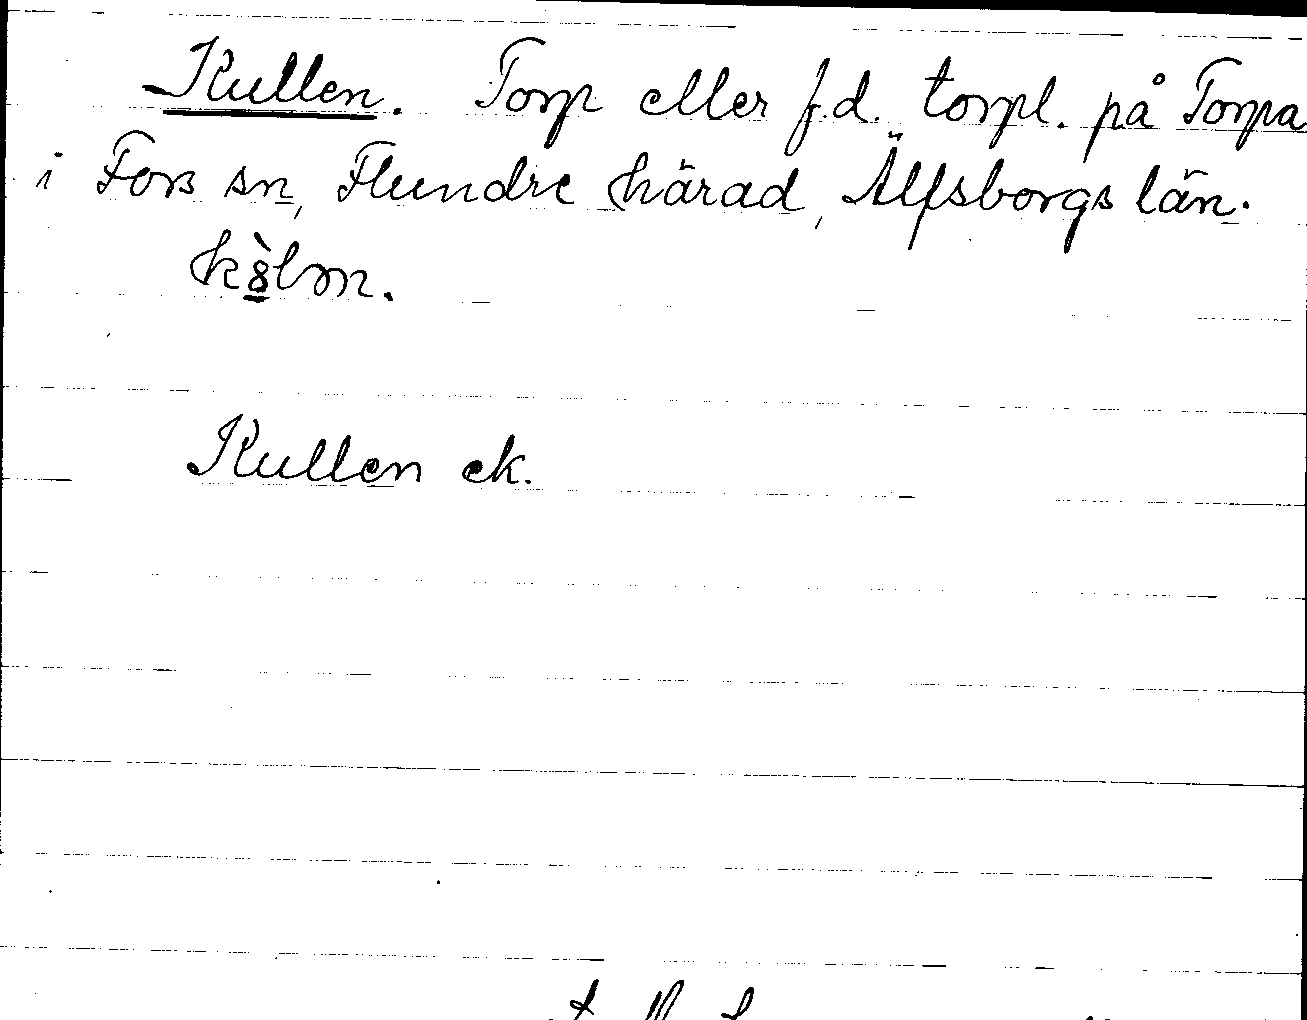 Kullen. Torp eller f.d. torpl. på Torpa
i Fors sn, Flundre härad, Älfsborgs län.
Kullen ek.